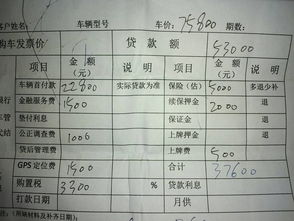 客户姓名: 车辆型号 车价: 75800 期数:
购车发票价 贷款额 53000
项目 金额(元) 说明 项目 金额(元) 说明
车辆首付款 22800 实际贷款为准 保险(估) 5000 多退少补
金融服务费 1500 续保押金 2000 退
垫付利息 保证金 退
公正调查费 1000 上牌押金 退
贷后管理费 上牌费 500
GPS定位费 1500 合计 37600
购置税 3300 % 贷款利息
打款日期 月供